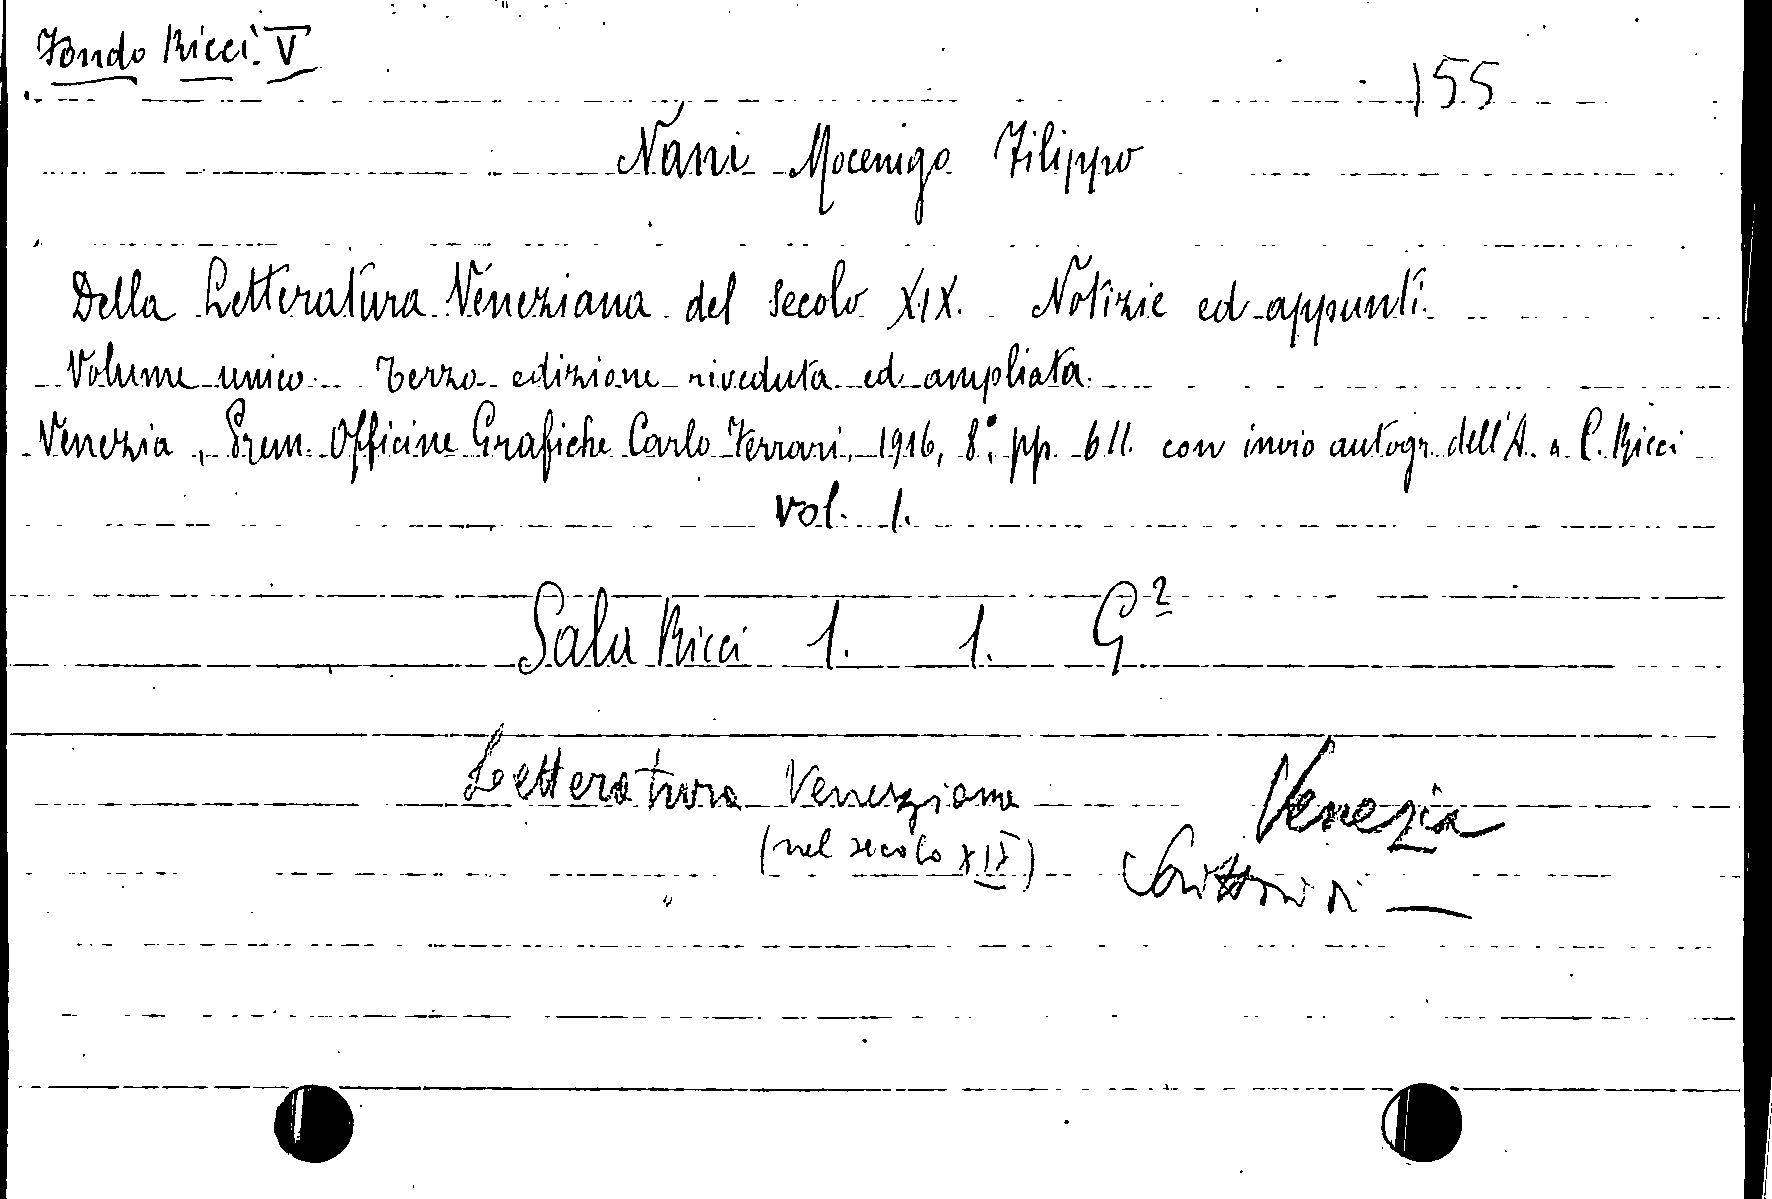 Fondo Ricci. V
155
Nani Mocenigo Filippo
Della Letteratura Veneziana del secolo XIX. Notizie ed appunti.
Volume unico. Terza edizione riveduta ed ampliata.
Venezia, Prem. Officine Grafiche Carlo Ferrari, 1916, 8°, pp. 611. con invio autogr. dell'A. a C. Ricci
Vol. 1.
Sala Ricci 1. 1. G²
Letteratura Veneziana
Venezia
(nel secolo XIX)
Scrittori di —